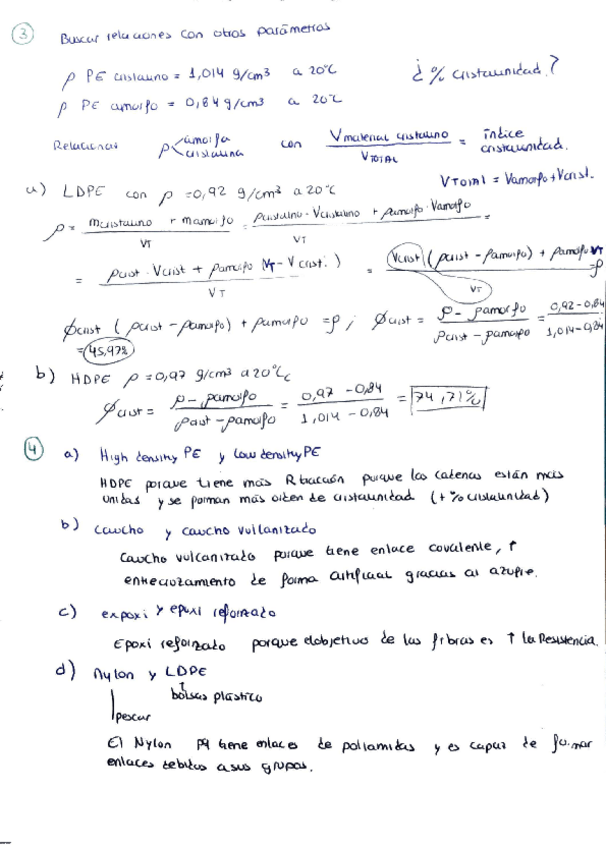 3 Buscar relaciones con otros parámetros
ρ PE cristalino = 1,014 g/cm³ a 20°C ¿% cristalinidad?
ρ PE amorfo = 0,84 g/cm³ a 20°C
Relacionar ρ < amorfa cristalina con V material cristalino / V TOTAL = índice cristalinidad.
V TOTAL = Vamorfo + Vcrist.
a) LDPE con ρ = 0,92 g/cm³ a 20°C
ρ = (mcristalino + mamorfo) / VT = (ρcristalino · Vcristalino + ρamorfo · Vamorfo) / VT =
= (ρcrist · Vcrist + ρamorfo (VT - Vcrist.)) / VT = (Vcrist (ρcrist - ρamorfo) + ρamorfo VT) / VT = ρ
φcrist (ρcrist - ρamorfo) + ρamorfo = ρ ; φcrist = (ρ - ρamorfo) / (ρcrist - ρamorfo) = (0,92 - 0,84) / (1,014 - 0,84)
= 45,97%
b) HDPE ρ = 0,97 g/cm³ a 20°C
φcrist = (ρ - ρamorfo) / (ρcrist - ρamorfo) = (0,97 - 0,84) / (1,014 - 0,84) = 74,71%
4 a) High density PE y low density PE
HDPE porque tiene más porque las cadenas están más
unidas y se forman más orden de cristalinidad (+ % cristalinidad)
b) caucho y caucho vulcanizado
Caucho vulcanizado porque tiene enlace covalente, ↑
entrecruzamiento de forma artificial gracias al azufre.
c) expoxi y epoxi reforzado
Epoxi reforzado porque el objetivo de las fibras es ↑ la Resistencia.
d) Nylon y LDPE
bolsas plástico
pescar
El Nylon pq tiene enlaces de poliamidas y es capaz de formar
enlaces debidos a sus grupos.